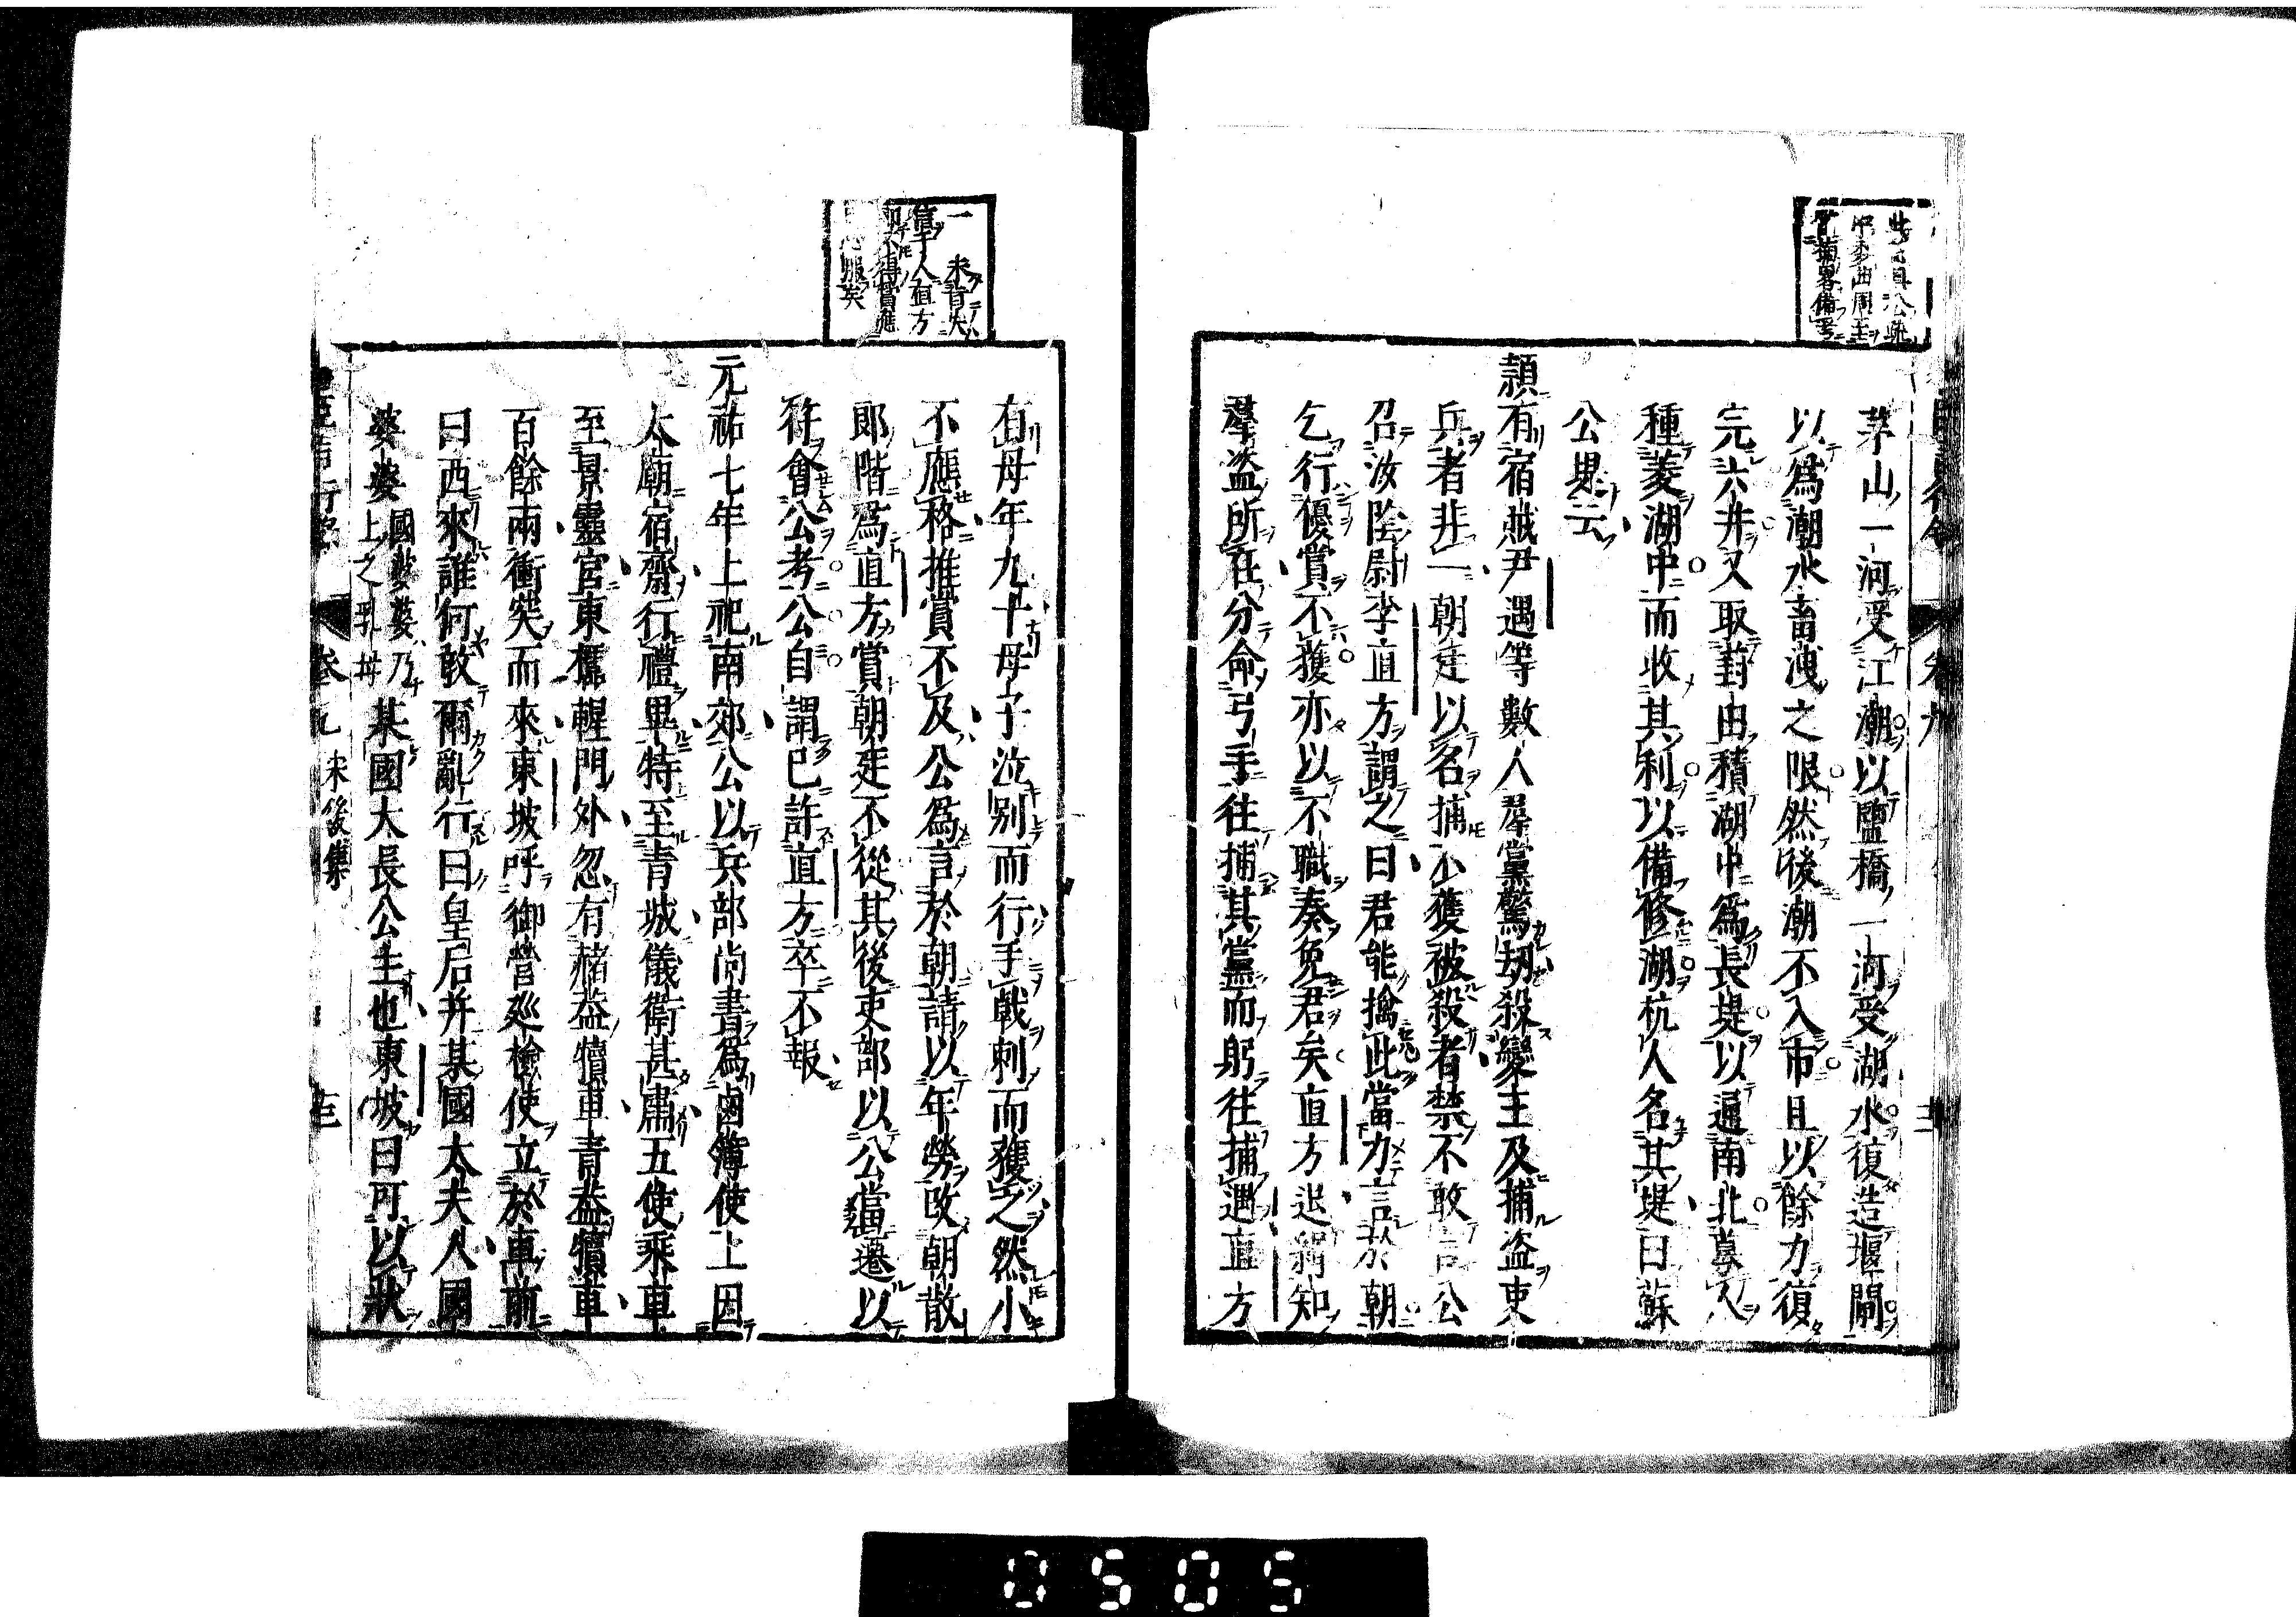 茅山一河受江潮以鹽橋一河受湖水復造堰閘
以爲潮水畜洩之限然後潮不入市且以餘力復
完六井又取葑田積湖中爲長堤以通南北募人
種菱湖中而收其利以備修湖杭人名其堤曰蘇
公堤云
頴有宿賊尹遇等數人羣黨驚劫殺變主及捕盜吏
兵者非一朝廷以名捕不獲被殺者禁不敢言公
召汝陰尉李直方謂之曰君能擒此當力言於朝
乞行優賞不獲亦以不職奏免君矣直方退緝知
羣盜所在分命弓手往捕其黨而躬往捕遇直方
一
未嘗失
服矣
有母年九十母子泣別而行手戟刺而獲之然小
不應格推賞不及公爲言於朝請以年勞改朝散
郎階爲直方賞朝廷不從其後吏部以公當遷以
符會公考公自謂已許直方卒不報
元祐七年上祀南郊公以兵部尚書爲鹵簿使上因
太廟宿齋行禮畢特至青城儀衛甚肅五使乘車
至景靈宮東櫺輊門外忽有赭蓋犢車青蓋犢車
百餘兩衝突而來東坡呼御營巡檢使立於車前
曰西來誰何敢爾亂行曰皇后并某國太夫人國
婆婆國婆婆乃上之乳母某國大長公主也東坡曰可以狀
卷九
宋後集
0505